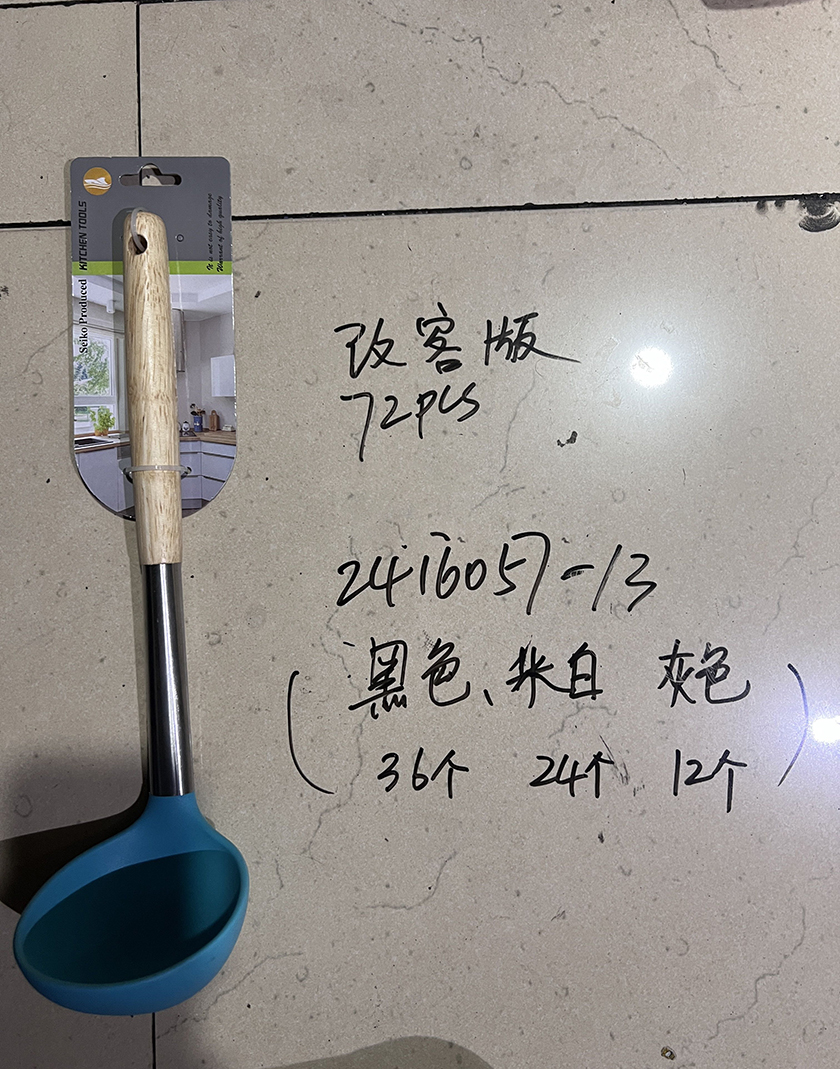 KITCHEN TOOLS
It is not easy to damage
Warrant of high quality
Seiko Produced
改客版
72pcs
2416057-13
(黑色、米白 灰色
36个 24个 12个)